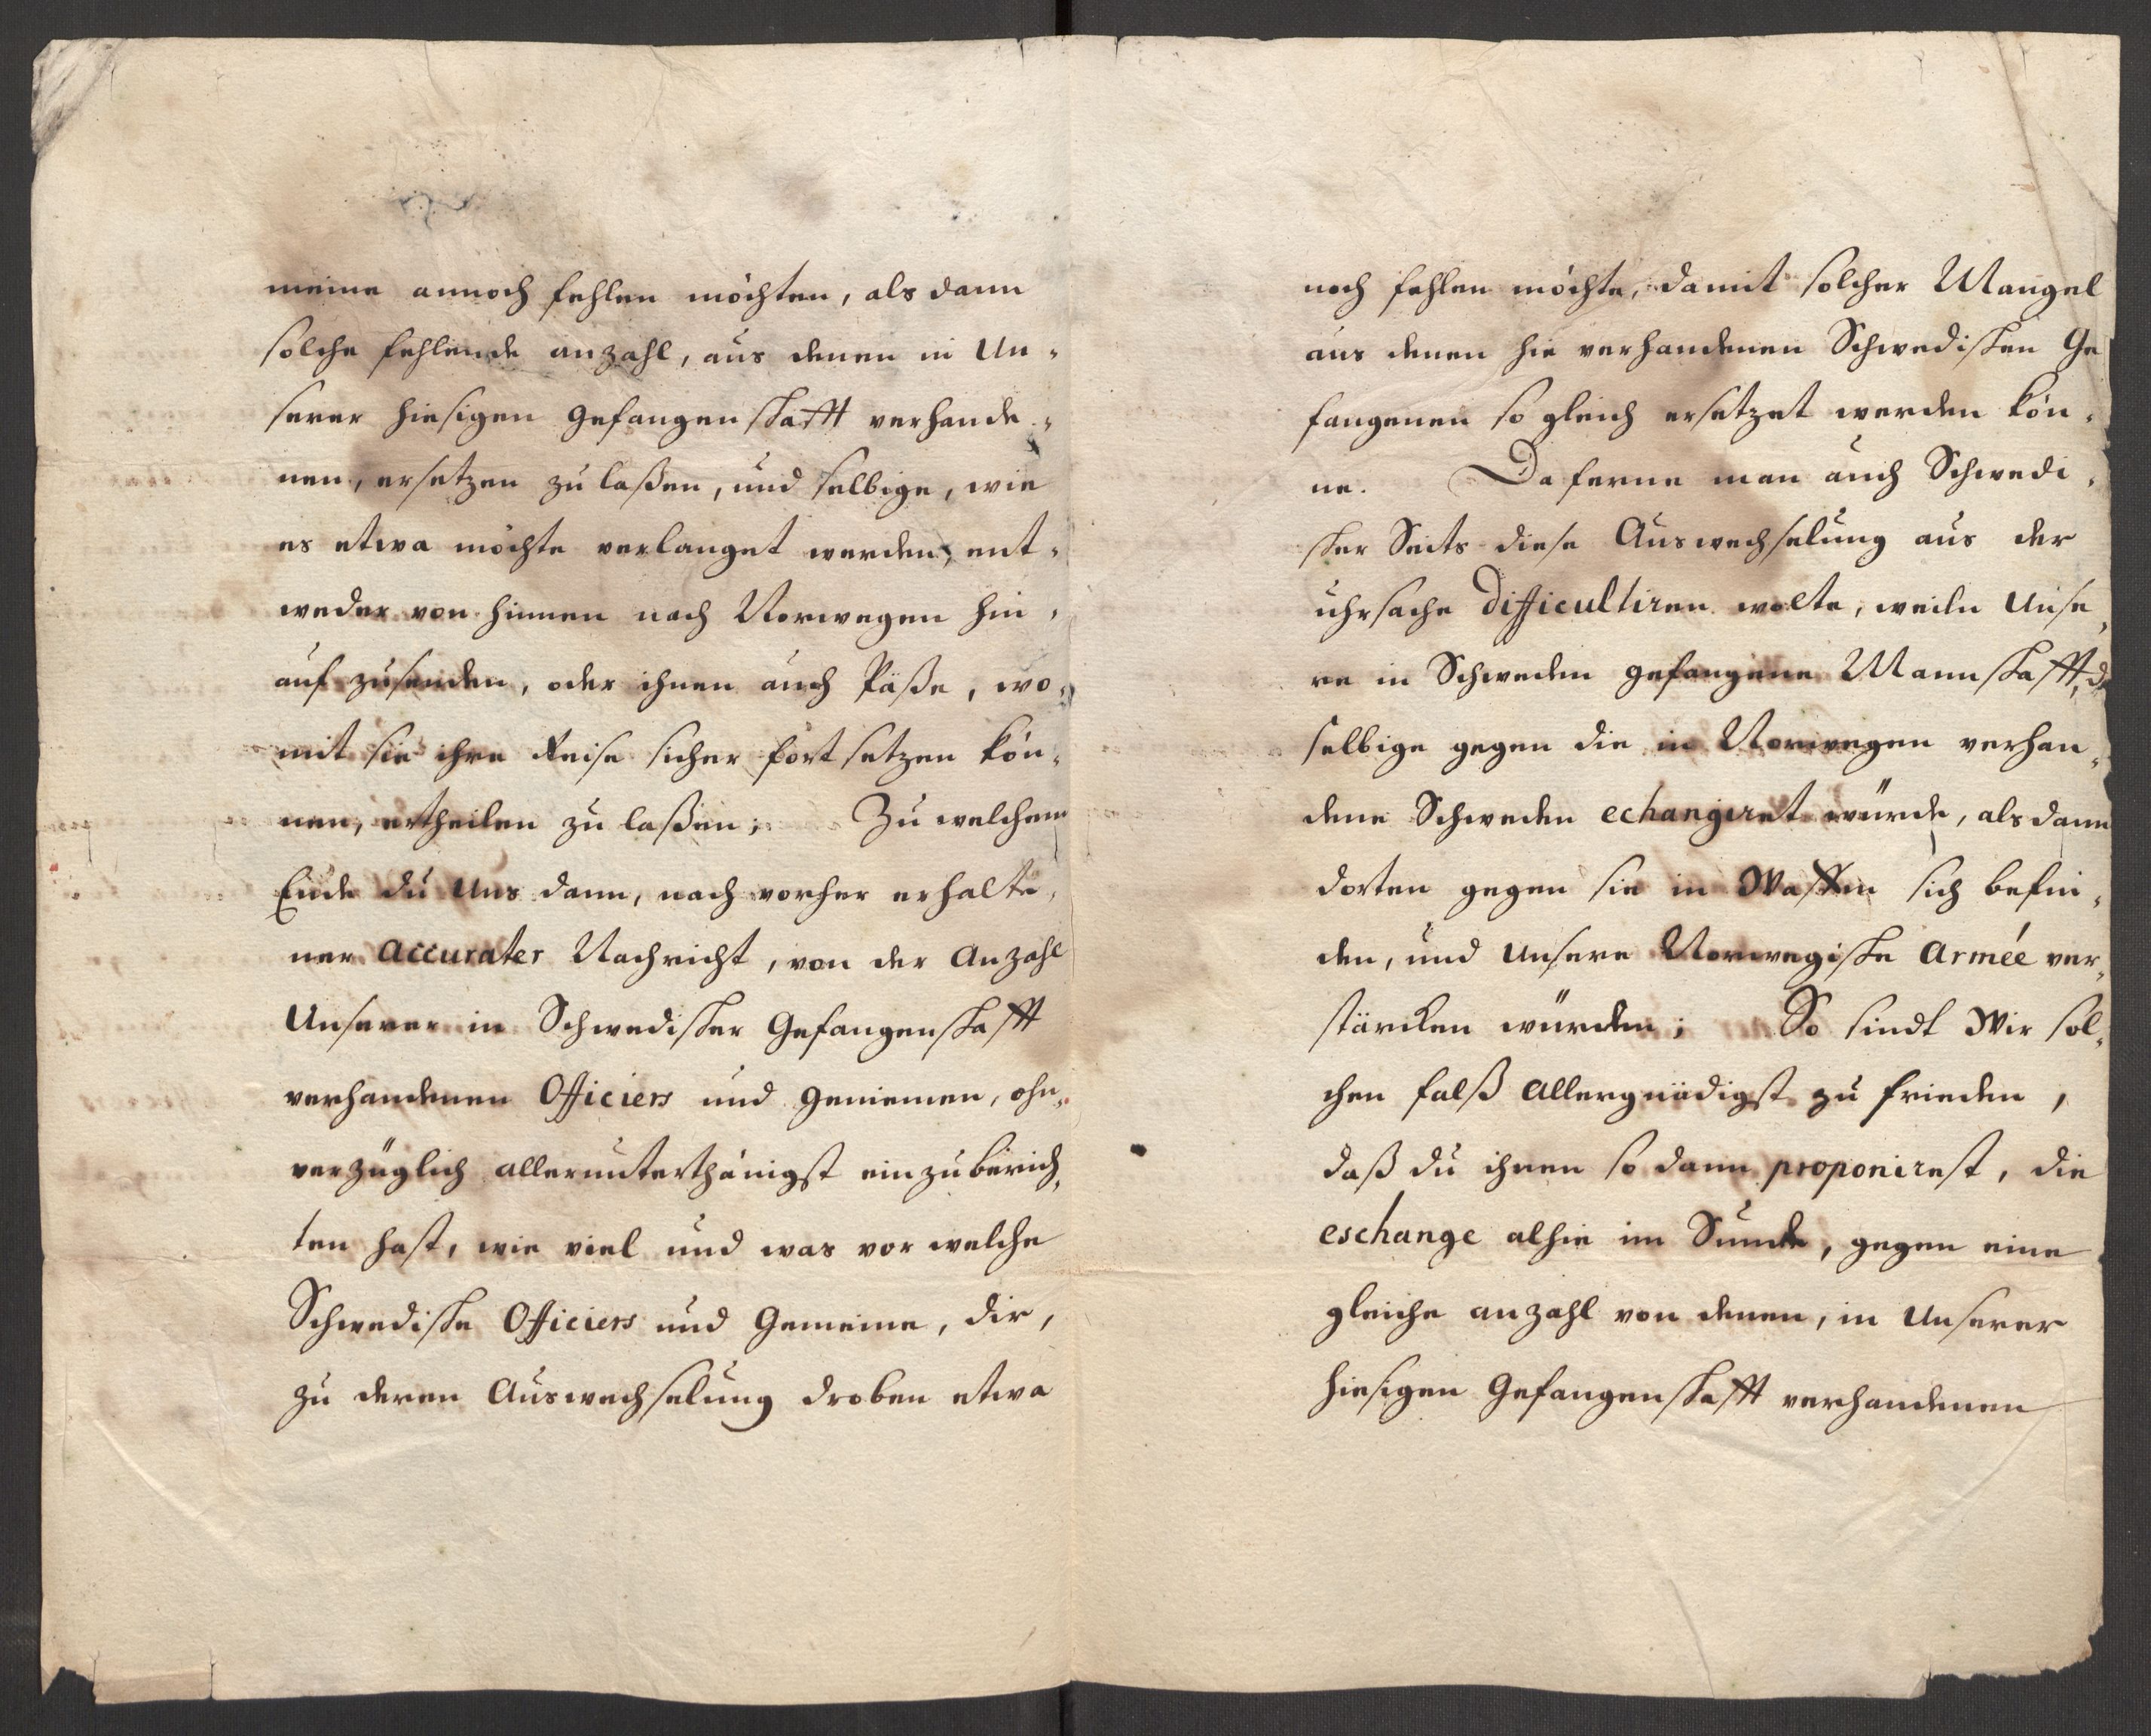 meine annoch fehlen möchten, als dann
solche fehlende anzahl, aus denen in Un-
serer hiesigen gefangenschafft verhande-
nen, ersetzen zu laßen, und selbige, wie
es etwa möchte verlanget werden, ent-
weder von hinnen nach Norwegen hin-
auf zusenden, oder ihnen auch Päße, wo-
mit sie ihre Reise sicher fort setzen kön-
nen, ertheilen zu laßen; Zu welchem
Ende du Uns dann, nach vorher erhalte-
ner accurater Nachricht, von der Anzahl
Unserer in Schwedischer Gefangenschafft
verhandenen Officiers und gemeinen, ohn-
verzüglich allerunterthänigst einzuberich-
ten hast, wie viel und was vor welche
Schwedische Officiers und Gemeine, dir,
zu deren Auswechselung droben etwa
noch fehlen möchte, damit solcher Mangel
aus denen hie verhandenen Schwedischen Ge
fangenen so gleich ersetzet werden kön-
ne. Da ferne man auch Schwedi-
scher Seits diese Auswechselung aus der
uhrsache difficultiren wolte, weiln Unse-
re in Schweden gefangene Mannschafft, d
selbige gegen die in Norwegen verhan-
dene Schweden echangiret würde, als dann
dorten gegen sie in Waffen sich befin-
den, und unsere Norwegische Armée ver-
stärcken würden; So sindt Wir sol-
chen falß allergnädigst zu frieden,
daß du ihnen so dann proponirest, die
eschange alhie im Sunde, gegen eine
gleiche anzahl von denen, in Unserer
hiesigen Gefangenschafft verhandenen